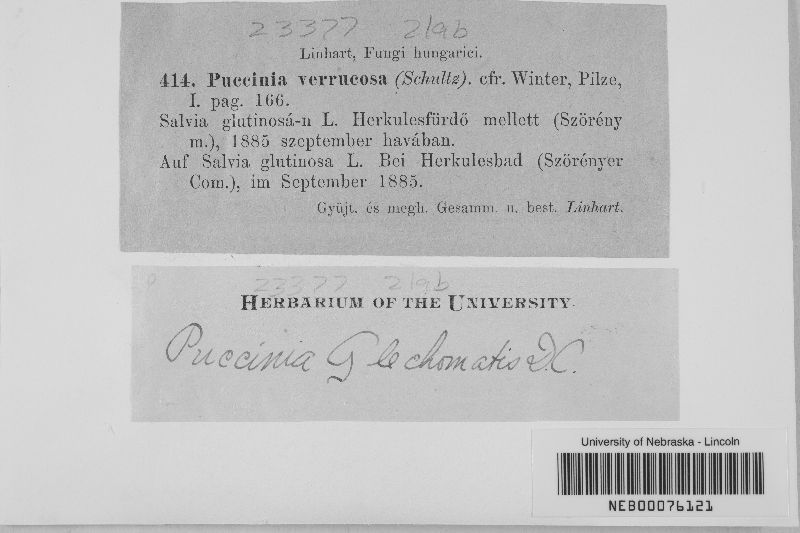 23377 219b
Linhart, Fungi hungarici.
414. Puccinia verrucosa (Schultz). cfr. Winter, Pilze,
I. pag. 166.
Salvia glutinosá-n L. Herkulesfürdő mellett (Szörény
m.), 1885 szeptember havában.
Auf Salvia glutinosa L. Bei Herkulesbad (Szörényer
Com.), im September 1885.
Gyüjt. és megh. Gesamm. u. best. Linhart.
23377 219b
HERBARIUM OF THE UNIVERSITY.
Puccinia Glechomatis D.C.
University of Nebraska - Lincoln
NEB00076121